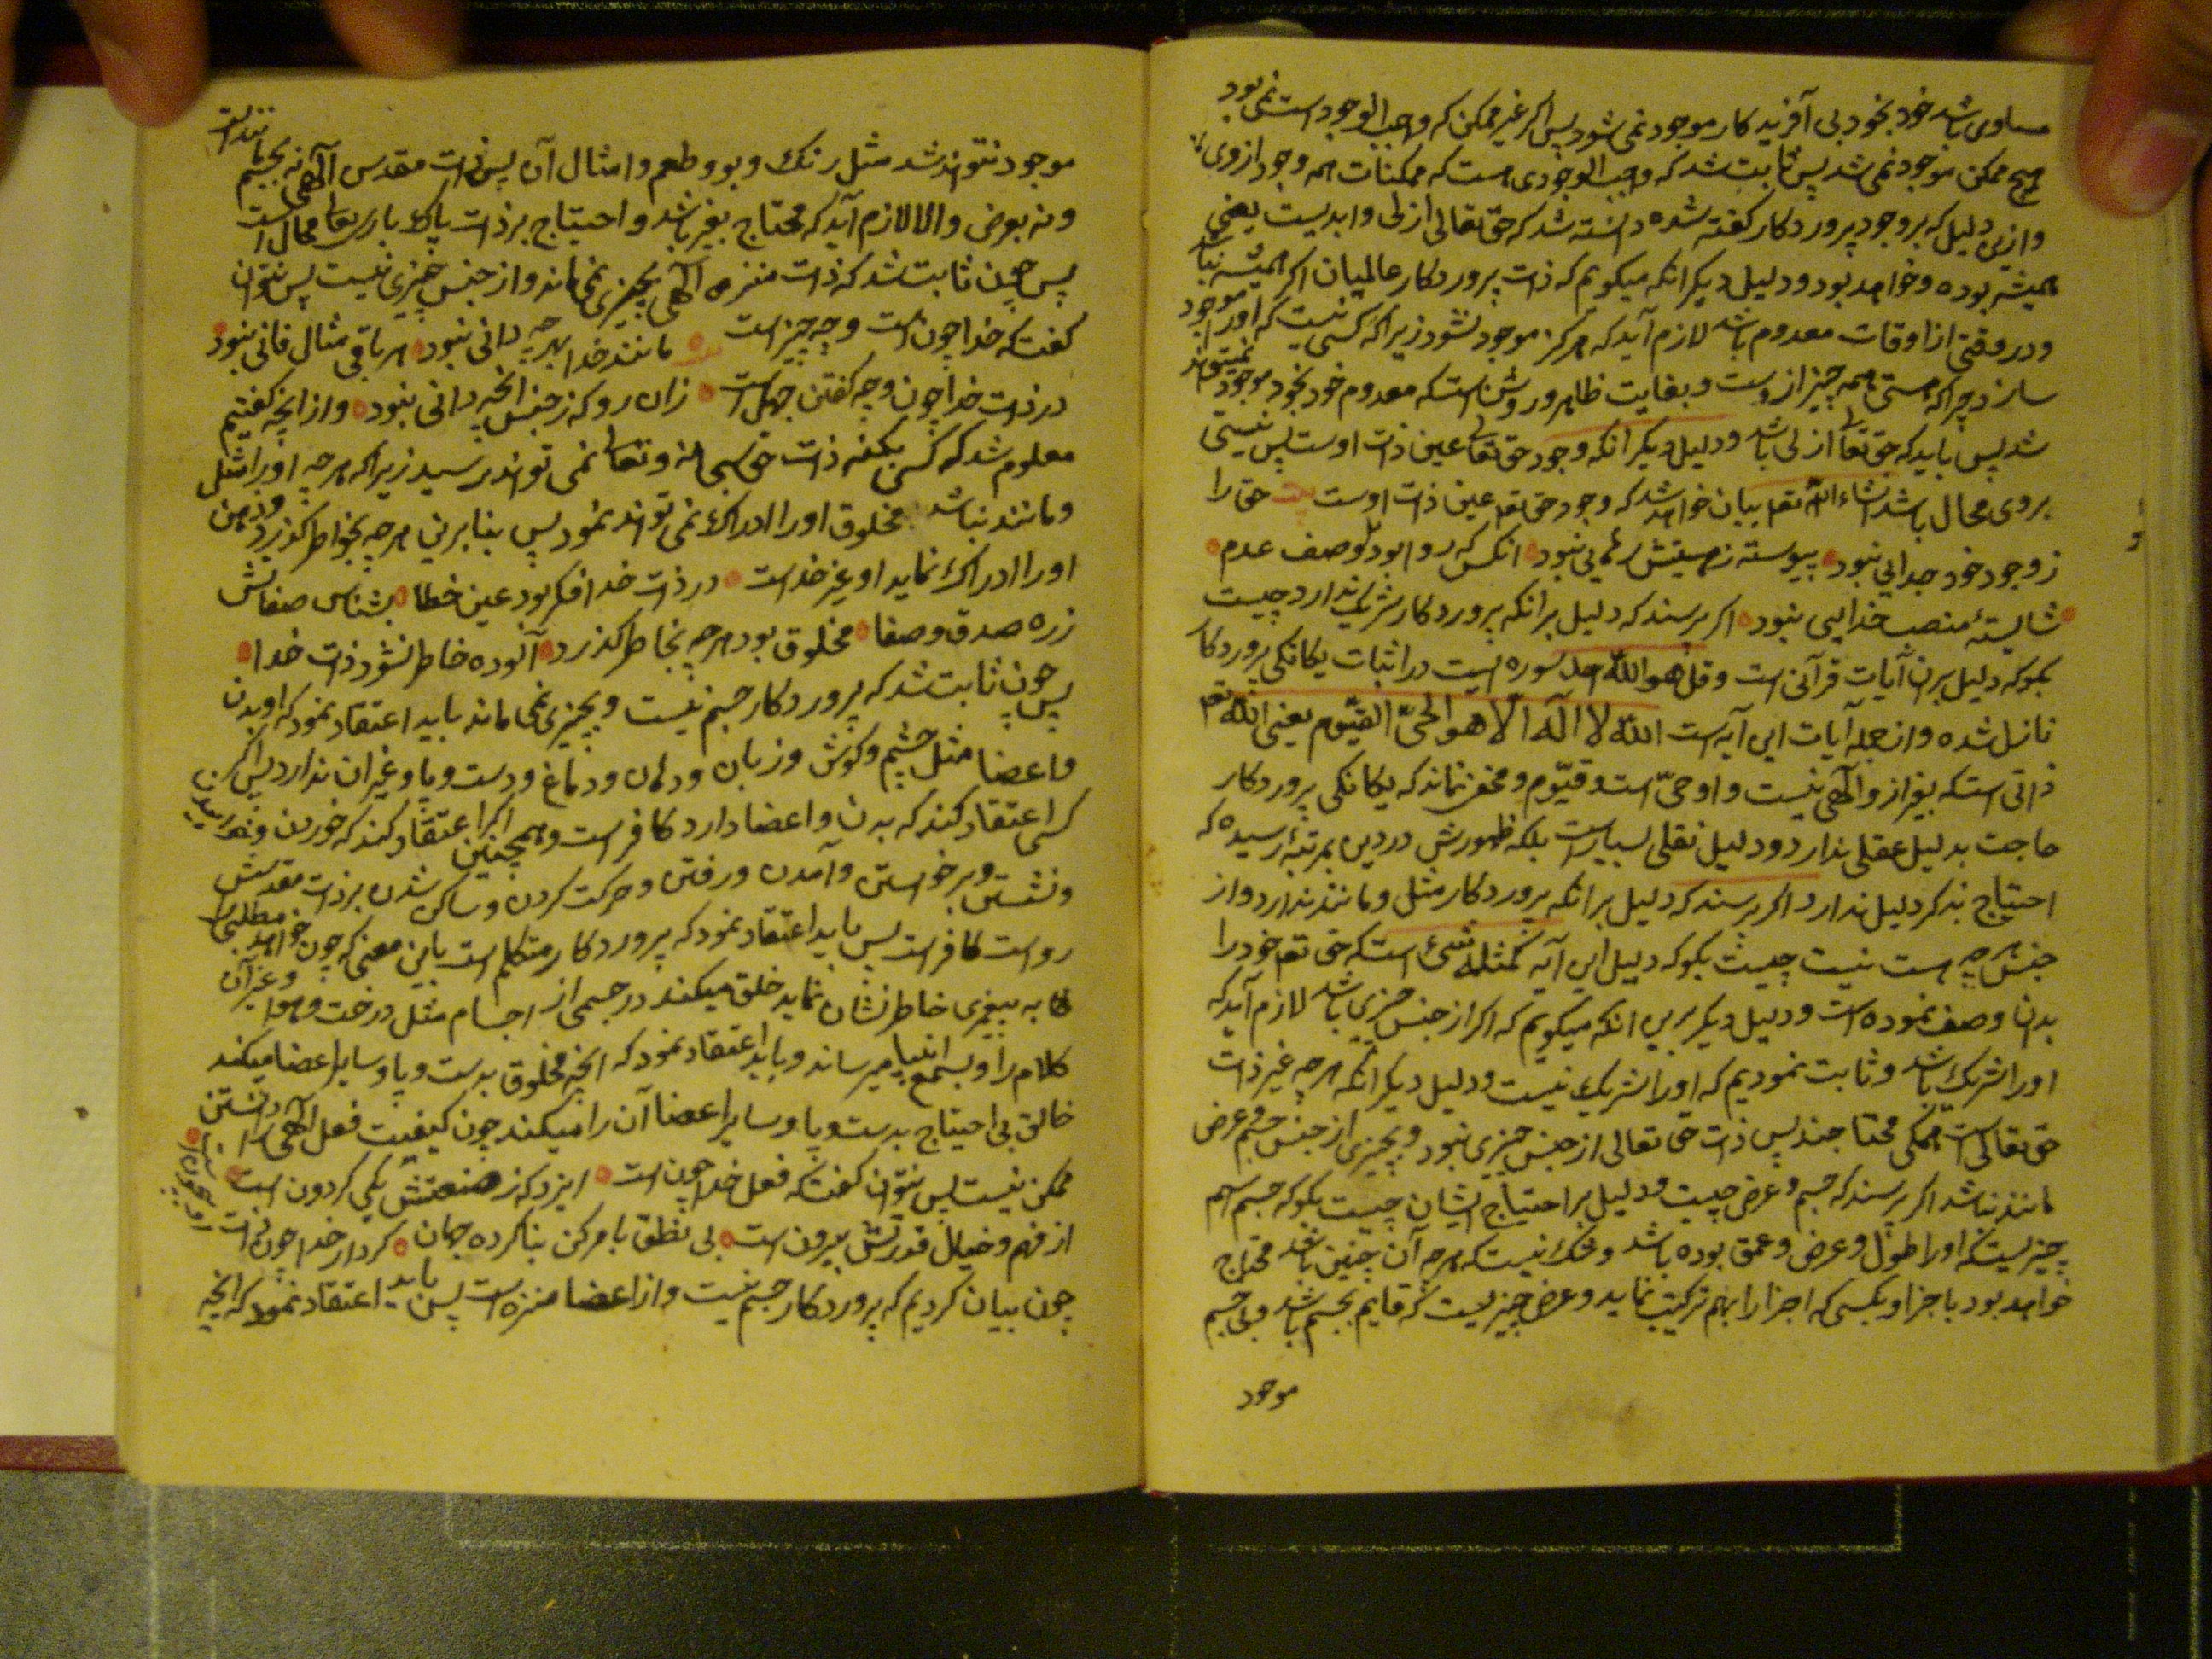 مساوی باشد خود بخود بی آفریدکار موجود نمی شود پس اکر غیر ممکن که واجب الوجود است نمی بود
هیچ ممکن موجود نمی شد پس ثابت شد که واجب الوجودی هست که ممکنات همه وجود از وی
وازین دلیل که بر وجود پروردکار کفته شده دانسته شد که حق تعالی ازلی وابدیست یعنی
همیشه بوده وخواهد بود ودلیل دیکر انکه میکویم که ذات پروردکار عالمیان اکر همیشه نباشد
ودر وقتی از اوقات معدوم باشد لازم آید که هرکز موجود نشود زیراکه کسی نیست که اورا موجود
سازد چراکه هستی همه چیز ازوست وبغایت ظاهر وروشن است که معدوم خود بخود موجود نمیتواند
شد پس باید که حق تعالی ازلی باشد ودلیل دیکر انکه وجود حق تعالی عین ذات اوست پس نیستی
بروی محال باشد انشاء الله تعم بیان خواهد شد که وجود حق تعم عین ذات اوست بیت حق را
زوجود خود جدایی نبود پیوسته زهستیش رهایی نبود انکس که روا بود بوصف عدم
شایستهٔ منصب خدایی نبود اکر پرسند که دلیل برانکه پروردکار شریک ندارد چیست
بکو که دلیل برین آیات قرآنی است وقل هو الله احد سوره ایست در اثبات یکانکی پروردکار
نازل شده وازجمله آیات این آیه است الله لا اله الا هو الحیّ القیّوم یعنی الله تعم
ذاتی است که بغیر ازو الهی نیست واو حیّ است وقیّوم ومخفی نماند که یکانکی پروردکار
حاجت بدلیل عقلی ندارد ودلیل نقلی بسیار است بلکه ظهورش در دین بمرتبهٔ رسیده که
احتیاج بذکر دلیل ندارد اکر پرسند که دلیل برانکه پروردکار مثل ومانند ندارد واز
جنس هر چه هست نیست چیست بکو که دلیل این آیه کمثله شیء است که حق تعم خود را
بدان وصف نموده است ودلیل دیکر برین انکه میکویم که اکر از جنس چیزی باشد لازم آید که
اورا شریک باشد وثابت نمودیم که اورا شریک نیست ودلیل دیکر انکه هر چه غیر ذات
حق تعالی است همکی محتاجند پس ذات حق تعالی از جنس چیزی نبود وبچیزی از جنس جسم وعرض
مانند نباشد اکر پرسند که جسم وعرض چیست ودلیل بر احتیاج ایشان چیست بکو که جسم اسم
چیزیست که اورا طول وعرض وعمق بوده باشد وشک نیست که هر چه آن چنین باشد محتاج
خواهد بود باجزا وبکسی که اجزا را بهم ترکیب نماید وعرض چیزیست که قایم بجسم باشد وبی جسم
موجود
موجود نتواند شد مثل رنک وبو وطعم وامثال آن پس ذات مقدس الهی نه بجسم مانند است
ونه بعرض والا لازم آید که محتاج بغیر باشد واحتیاج بر ذات پاک باری تعالی محال است
پس چون ثابت شد که ذات منزه الهی بچیزی نمی ماند واز جنس چیزی نیست پس نتوان
کفت که خدا چون است وچه چیز است مانند خدا هر چه دانی نبود هر باقی مثال فانی نبود
در ذات خدا چون وچه کفتن جهلست زان رو که زجنس انچه دانی نبود واز انچه کفتیم
معلوم شد که کسی بکنه ذات حق سبحانه وتعالی نمی تواند رسید زیراکه هر چه اورا مثل
ومانند نباشد مخلوق اورا ادراک نمی تواند نمود پس بنابرین هر چه بخواطر کذرد وذهن
اورا ادراک نماید او غیر خداست در ذات خدا فکر بود عین خطا بشناس صفاتش
زره صدق وصفا مخلوق بود هر چه بخاطر کذرد آلوده خاطر نشود ذات خدا
پس چون ثابت شد که پروردکار جسم نیست وبچیزی نمی ماند باید اعتقاد نمود که او بدن
واعضا مثل چشم وکوش وزبان ودهان ودماغ ودست وپا وغیر ان ندارد پس اکر
کسی اعتقاد کند که بدن واعضا دارد کافر است وهمچنین اکر اعتقاد کند که خوردن
ونشستن وبرخواستن وآمدن ورفتن وحرکت کردن وساکن شدن بر ذات مقدسش
رواست کافر است پس باید اعتقاد نمود که پروردکار متکلم است باین معنی که چون خواهد مطلبی را
به پیغمبری خاطر نشان نماید خلق میکند در جسمی از اجسام مثل درخت وهوا وغیر آن
کلام را وبسمع انبیا میرساند وباید اعتقاد نمود که انچه مخلوق بدست وپا وسایر اعضا میکند
خالق بی احتیاج بدست وپا وسایر اعضا آن را میکند چون کیفیت فعل الهی را دانستن
ممکن نیست پس نتوان کفت که فعل خدا چون است ایزد که ز صنعتش یکی کردون است
از فهم وخیال قدرتش بیرون است بی نطق بامر کن بنا کرده جهان کردار خدا چو ذات او بیچون است
چون بیان کردیم که پروردکار جسم نیست واز اعضا منزه است پس باید اعتقاد نمود که انچه